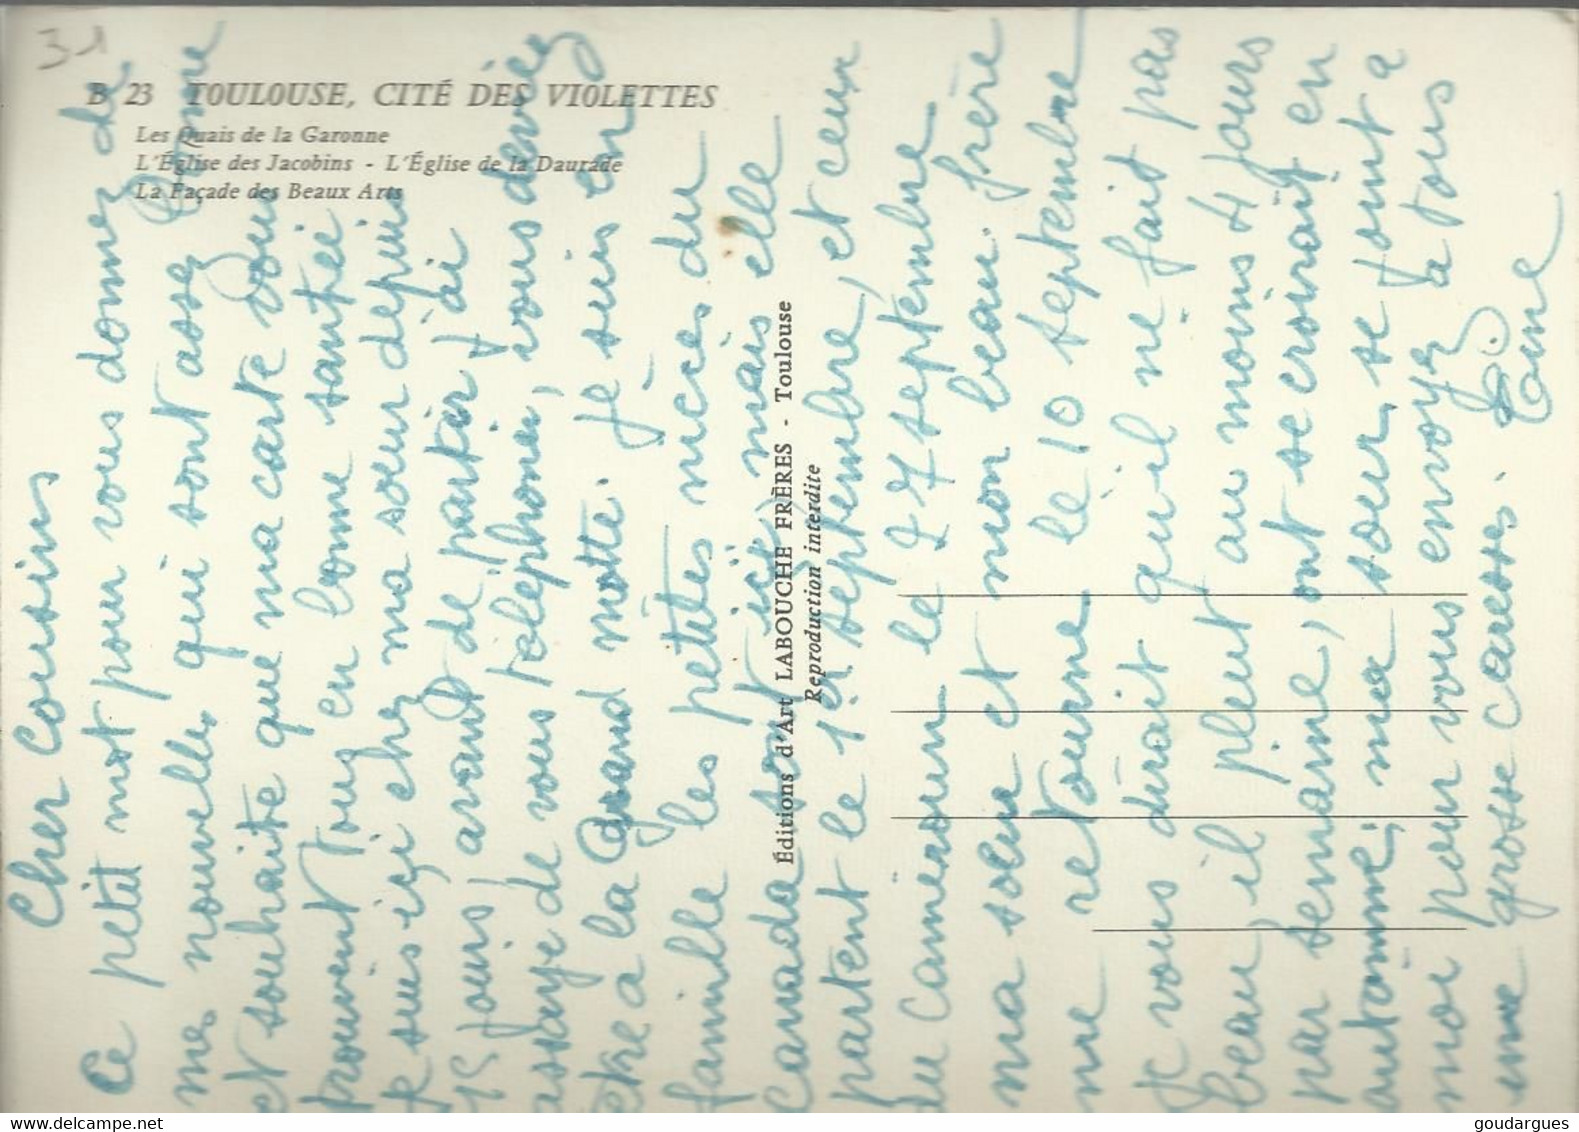 31
B 23 TOULOUSE, CITÉ DES VIOLETTES
Les Quais de la Garonne
L'Église des Jacobins - L'Église de la Daurade
La Façade des Beaux Arts
Éditions d'Art LABOUCHE FRÈRES - Toulouse
Reproduction interdite
Cher Cousins
Ce petit mot pour vous donnez de
mes nouvelles qui sont assez bonne
et souhaite que ma carte vous
trouvent tous en bonne santée
je suis içi chez ma soeur depuis
15 jours, avant de partir j'ai
assaye de vous téléphoner, vous deviez
etre a la Grand motte. je suis en
famille les petites nièces du
Canada sont ici, mais elle
partent le 1er septembre, et ceux
du Cameroun le 27 septembre
ma soeur et mon beau frère
me retourne le 10 septembre
je vous dirait qu'il ne fait pas
beau, il pleut au moins 4 jours
par semaine, ont se croirait en
automne, ma soeur se joint a
moi pour vous envoyez a tous
une grosse caresses.
goudargues